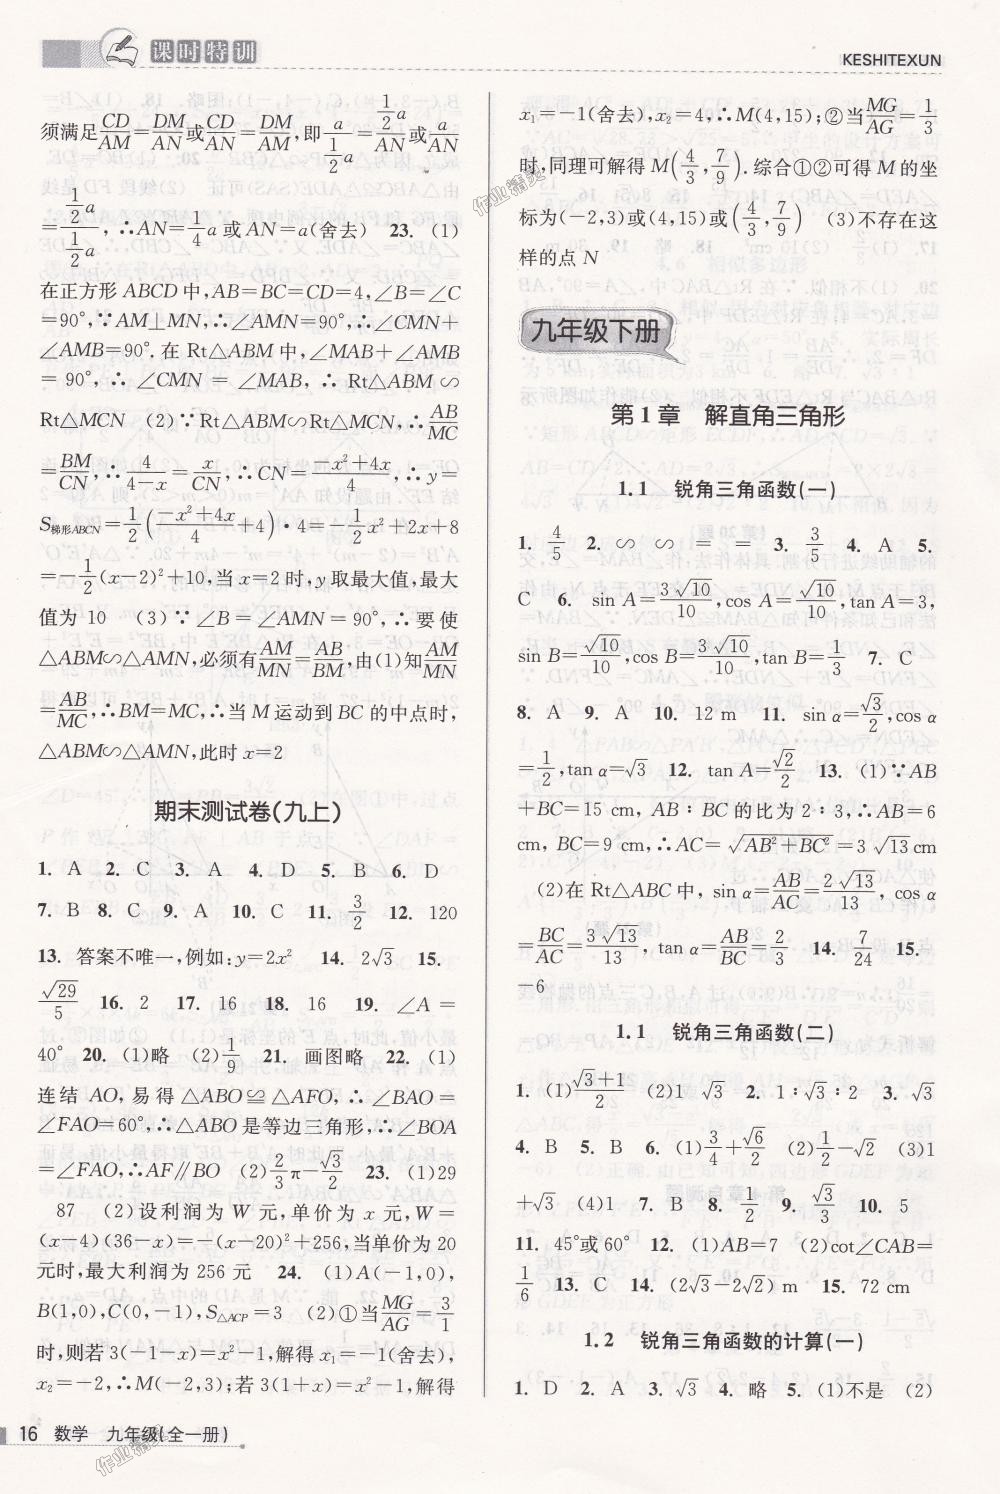 课时特训
KESHITEXUN
须满足CD/AM=DM/AN或CD/AN=DM/AM,即a/(1/2 a)=(1/2 a)/AN或a/AN
=(1/2 a)/(1/2 a),∴AN=1/4 a或AN=a(舍去) 23. (1)
在正方形ABCD中,AB=BC=CD=4,∠B=∠C
=90°,∵AM⊥MN,∴∠AMN=90°,∴∠CMN+
∠AMB=90°.在Rt△ABM中,∠MAB+∠AMB
=90°,∴∠CMN=∠MAB,∴Rt△ABM∽
Rt△MCN (2)∵Rt△ABM∽Rt△MCN,∴AB/MC
=BM/CN,∴4/(4-x)=x/CN,∴CN=(-x²+4x)/4,∴y=
S梯形ABCN=1/2((-x²+4x)/4+4)·4=-1/2x²+2x+8
=-1/2(x-2)²+10,当x=2时,y取最大值,最大
值为10 (3)∵∠B=∠AMN=90°,∴要使
△ABM∽△AMN,必须有AM/MN=AB/BM,由(1)知AM/MN
=AB/MC,∴BM=MC,∴当M运动到BC的中点时,
△ABM∽△AMN,此时x=2
期末测试卷(九上)
1. A 2. C 3. A 4. D 5. B 6. D
7. B 8. C 9. A 10. C 11. 3/2 12. 120
13. 答案不唯一,例如:y=2x² 14. 2√3 15.
√29/5 16. 2 17. 16 18. 16 19. ∠A=
40° 20. (1)略 (2)1/9 21. 画图略 22. (1)
连结AO,易得△ABO≌△AFO,∴∠BAO=
∠FAO=60°,∴△ABO是等边三角形,∴∠BOA
=∠FAO,∴AF∥BO (2)2/3π-√3/2 23. (1)29
87 (2)设利润为W元,单价为x元,W=
(x-4)(36-x)=-(x-20)²+256,当单价为20
元时,最大利润为256元 24. (1)A(-1,0),
B(1,0),C(0,-1),S△ACP=3 (2)①当MG/AG=3/1
时,则若3(-1-x)=x²-1,解得x₁=-1(舍去),
x₂=-2,∴M(-2,3);若3(1+x)=x²-1,解得
16 数学 九年级(全一册)
x₁=-1(舍去),x₂=4,∴M(4,15);②当MG/AG=1/3
时,同理可解得M(4/3,7/9).综合①②可得M的坐
标为(-2,3)或(4,15)或(4/3,7/9) (3)不存在这
样的点N
九年级下册
第1章 解直角三角形
1.1 锐角三角函数(一)
1. 4/5 2. ∽ ∽ = = 3. 3/5 4. A 5.
C 6. sin A=3√10/10,cos A=√10/10,tan A=3,
sin B=√10/10,cos B=3√10/10,tan B=1/3 7. C
8. A 9. A 10. 12 m 11. sin α=√3/2,cos α
=1/2,tan α=√3 12. tan A=√2/2 13. (1)∵AB
+BC=15 cm, AB∶BC的比为2∶3,∴AB=6
cm, BC=9 cm,∴AC=√(AB²+BC²)=3√13 cm
(2)在Rt△ABC中, sin α=AB/AC=2√13/13, cos α
=BC/AC=3√13/13, tan α=AB/BC=2/3 14. 7/24 15.
-6
1.1 锐角三角函数(二)
1. (1)(√3+1)/2 (2)1 √3 2. 1∶√3∶2 3. √3
4. B 5. B 6. (1)3/4+√6/2 (2)1/2-√2 (3)1
+√3 (4)1 7. B 8. 1/2 9. √3/3 10. 5
11. 45°或60° 12. (1)AB=7 (2)cot∠CAB=
1/6 13. C 14. (2√3-2√2) m 15. 72 cm
1.2 锐角三角函数的计算(一)
1. D 2. A 3. √3 4. 略 5. (1)不是 (2)
作业精灵
作业精灵